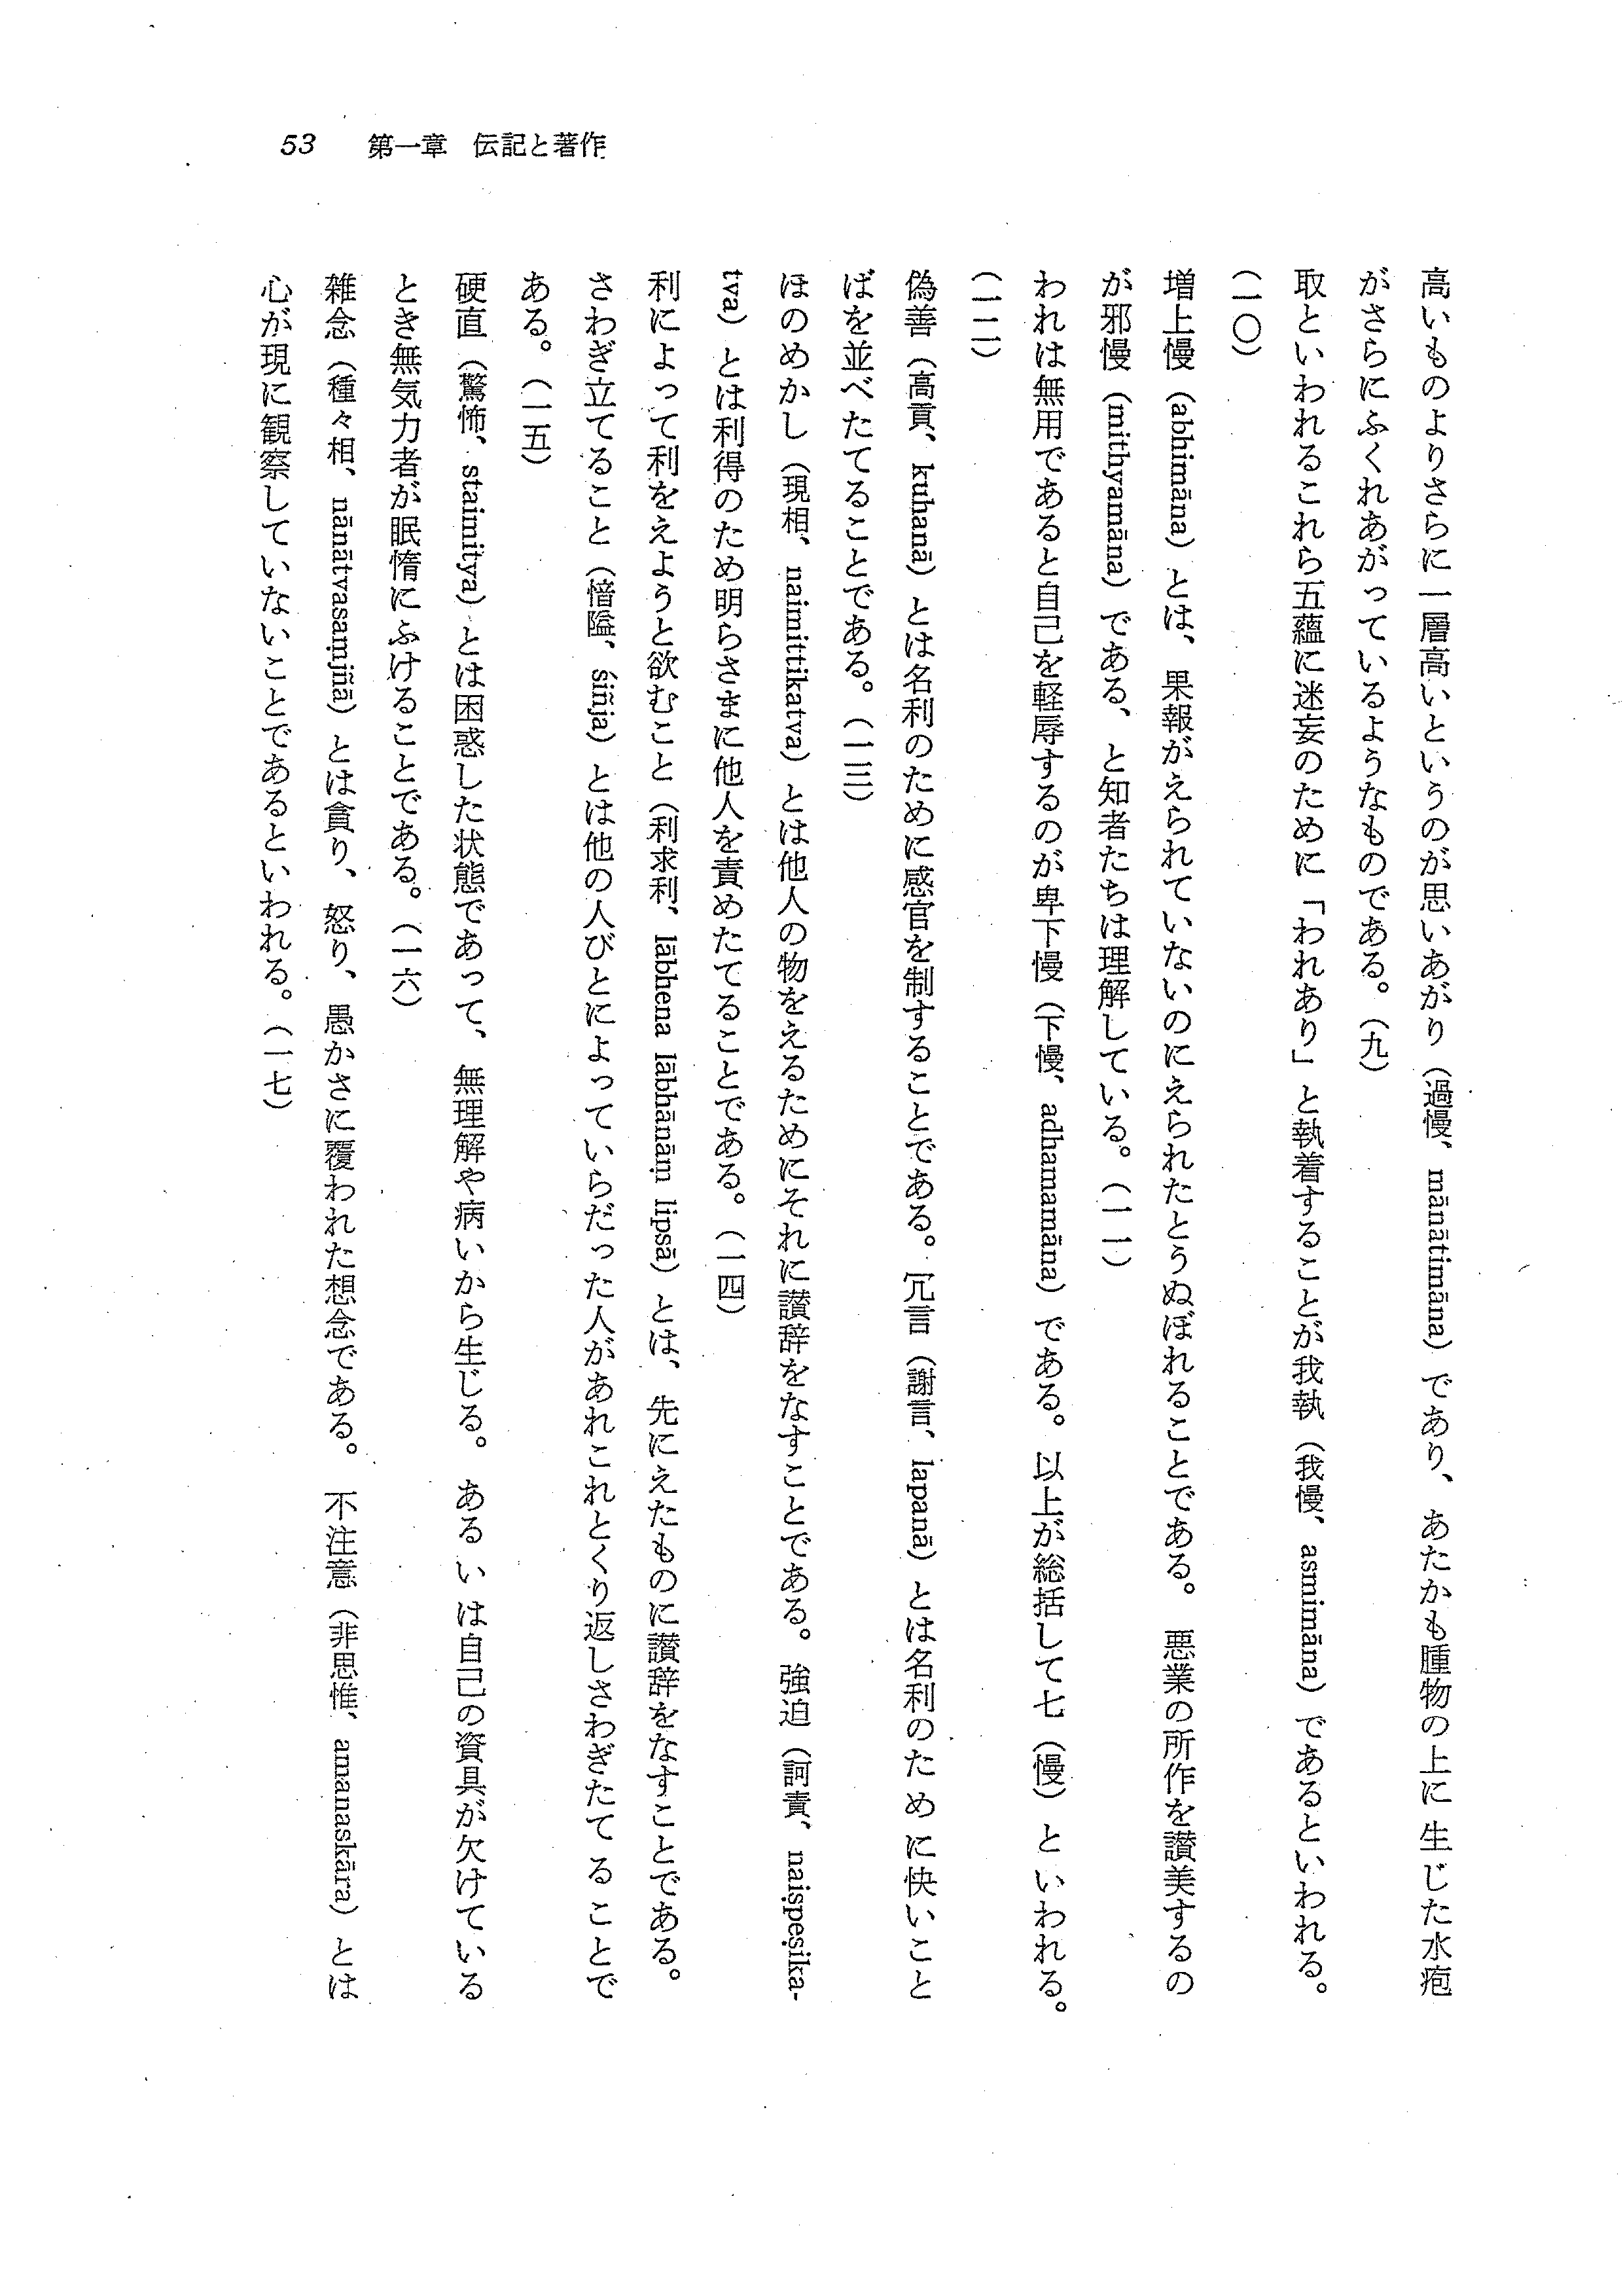 53　第一章　伝記と著作
高いものよりさらに一層高いというのが思いあがり（過慢、mānātimāna）であり、あたかも腫物の上に生じた水疱
がさらにふくれあがっているようなものである。（九）
取といわれるこれら五蘊に迷妄のために「われあり」と執着することが我執（我慢、asmimāna）であるといわれる。
（一〇）
増上慢（abhimāna）とは、果報がえられていないのにえられたとうぬぼれることである。悪業の所作を讃美するの
が邪慢（mithyamāna）である、と知者たちは理解している。（一一）
われは無用であると自己を軽辱するのが卑下慢（下慢、adhamamāna）である。以上が総括して七（慢）といわれる。
（一二）
偽善（高貢、kuhanā）とは名利のために感官を制することである。冗言（謝言、lapanā）とは名利のために快いこと
ばを並べたてることである。（一三）
ほのめかし（現相、naimittikatva）とは他人の物をえるためにそれに讃辞をなすことである。強迫（訶責、naiṣpeṣika-
tva）とは利得のため明らさまに他人を責めたてることである。（一四）
利によって利をえようと欲むこと（利求利、lābhena lābhānāṃ lipsā）とは、先にえたものに讃辞をなすことである。
さわぎ立てること（愔隘、śiñja）とは他の人びとによっていらだった人があれこれとくり返しさわぎたてることで
ある。（一五）
硬直（驚怖、staimitya）とは困惑した状態であって、無理解や病いから生じる。あるいは自己の資具が欠けている
とき無気力者が眠惰にふけることである。（一六）
雑念（種々相、nānātvasaṃjñā）とは貪り、怒り、愚かさに覆われた想念である。不注意（非思惟、amanaskāra）とは
心が現に観察していないことであるといわれる。（一七）